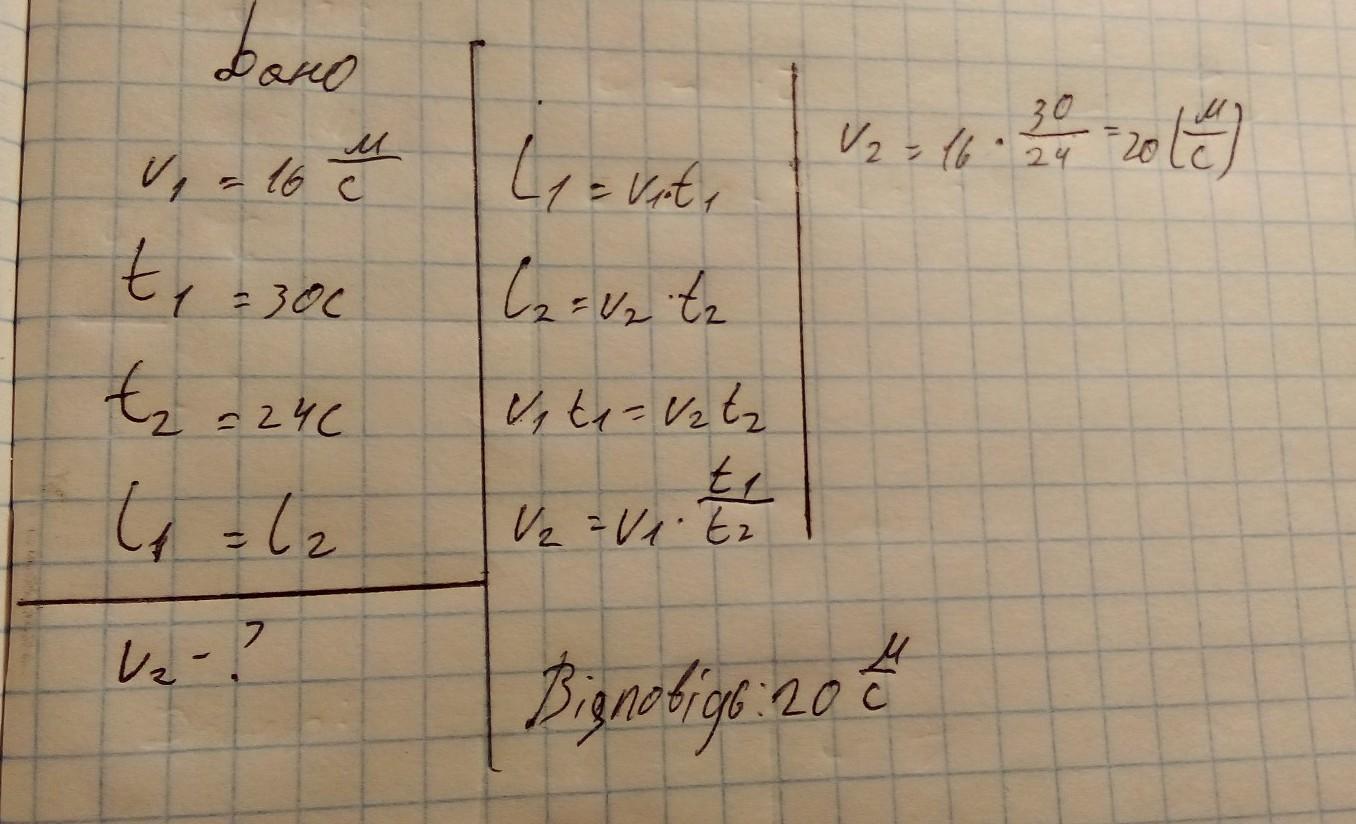 Дано
v₁ = 16 м/с
t₁ = 30с
t₂ = 24с
l₁ = l₂
v₂ - ?
l₁ = v₁·t₁
l₂ = v₂·t₂
v₁t₁ = v₂t₂
v₂ = v₁·t₁/t₂
v₂ = 16·30/24 = 20(м/с)
Відповідь: 20 м/с